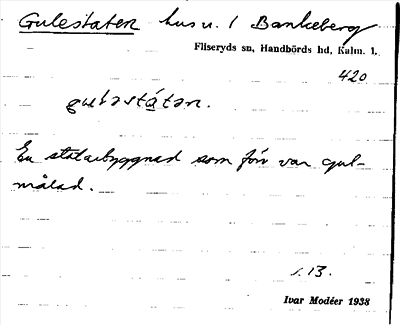 Gulestaten hus u. / Bankeberg
Fliseryds sn, Handbörds hd, Kalm. l.
420
guləstátən.
En statarbyggnad som förr var gul-
målad.
s. 13.
Ivar Modéer 1938